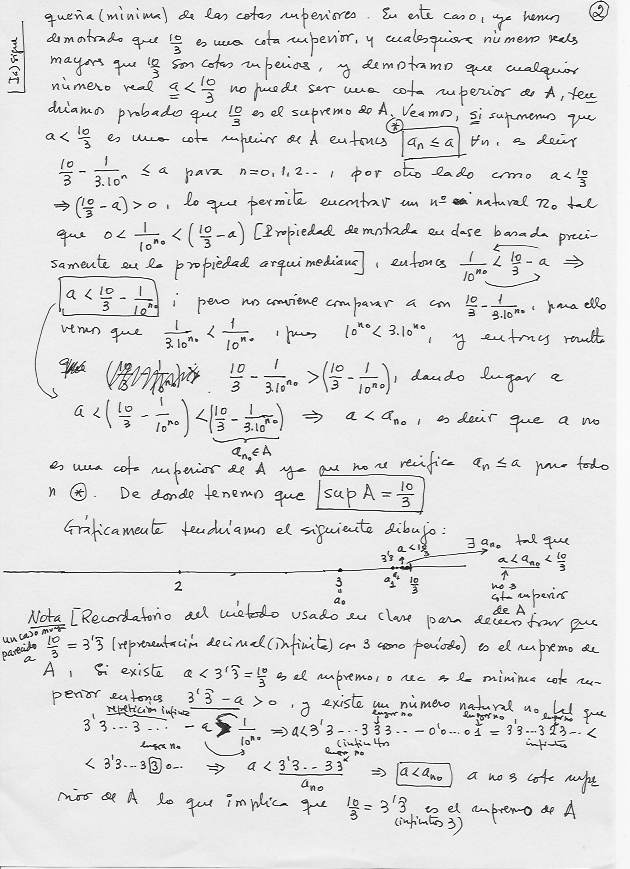 ②
Ia) sigue
queña (mínima) de las cotas superiores. En este caso, ya hemos
demostrado que 10/3 es una cota superior, y cualesquiera números reales
mayores que 10/3 son cotas superiores, y demostramos que cualquier
número real a < 10/3 no puede ser una cota superior de A, ten-
dríamos probado que 10/3 es el supremo de A. Veamos, si suponemos que
a < 10/3 es una cota superior de A entonces ⊛ aₙ ≤ a ∀n, es decir
10/3 - 1/(3.10ⁿ) ≤ a para n=0,1,2.. , por otro lado como a < 10/3
⇒ (10/3 - a) > 0, lo que permite encontrar un nº natural n₀ tal
que 0 < 1/10^n₀ < (10/3 - a) [Propiedad demostrada en clase basada preci-
samente en la propiedad arquimediana], entonces 1/10^n₀ < 10/3 - a ⇒
a < 10/3 - 1/10^n₀ ; pero nos conviene comparar a con 10/3 - 1/(3.10^n₀), para ello
vemos que 1/(3.10^n₀) < 1/10^n₀, pues 10^n₀ < 3.10^n₀, y entonces resulta
10/3 - 1/(3.10^n₀) > (10/3 - 1/10^n₀), dando lugar a
a < (10/3 - 1/10^n₀) < (10/3 - 1/(3.10^n₀)) ⇒ a < a_n₀, es decir que a no
a_n₀ ∈ A
es una cota superior de A ya que no se verifica aₙ ≤ a para todo
n ⊛. De donde tenemos que sup A = 10/3
Gráficamente tendríamos el siguiente dibujo:
3'3 a < 10/3 ∃ a_n₀ tal que
a < a_n₀ < 10/3
2 3 a₁ 10/3
a₀ no es
cota superior
de A
Nota [Recordatorio del método usado en clase para demostrar que
un caso muy
parecido a 10/3 = 3'3̂ (representación decimal (infinita) con 3 como período) es el supremo de
A, Si existe a < 3'3̂ = 10/3 es el supremo, o sea es la mínima cota su-
perior entonces 3'3̂ - a > 0, y existe un número natural n₀ tal que
repetición infinita lugar n₀ lugar n₀ lugar n₀
3'3...3... - a > 1/10^n₀ ⇒ a < 3'3...333.. - 0'0...01 = 3'3...323... <
lugar n₀ (infinitos infinitos
lugar n₀
< 3'3...330.. ⇒ a < 3'3...33 ⇒ a < a_n₀ a no es cota supe-
a_n₀
rior de A lo que implica que 10/3 = 3'3̂ es el supremo de A
(infinitos 3)